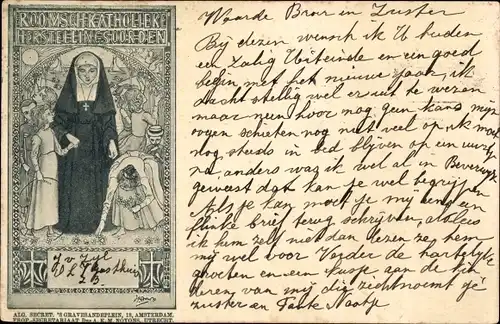 ROOMSCH KATHOLIEKE
HERSTELLINGSOORDEN
J v Zijl
ALG. SECRET. 'S GRAVESANDEPLEIN, 18, AMSTERDAM.
PROP.-SECRETARIAAT Dra A. E. M. NOTONS, UTRECHT.
Waarde Broer en Zuster
Bij dezen wensch ik U beiden
een Zalig Uiteinde en een goed
begin met het nieuwe jaar, ik
dacht stellig wel er uit te wezen
maar neen hoor nog geen kans mijn
oogen schieten nog niet veel op, ik mag
nog steeds in bed blijven op een uurtje
na, anders was ik wel al in Beverwijk
geweest dat kan je wel begrijpen
Als je kan moet je mij eens een
flinke brief terug schrijven, al
ik hem zelf niet dan lezen ze hem
mij wel voor Verder de hartelijke
groeten en een kusje aan de kin
deren van mij die zich noemt je
zuster en Tante Naatje